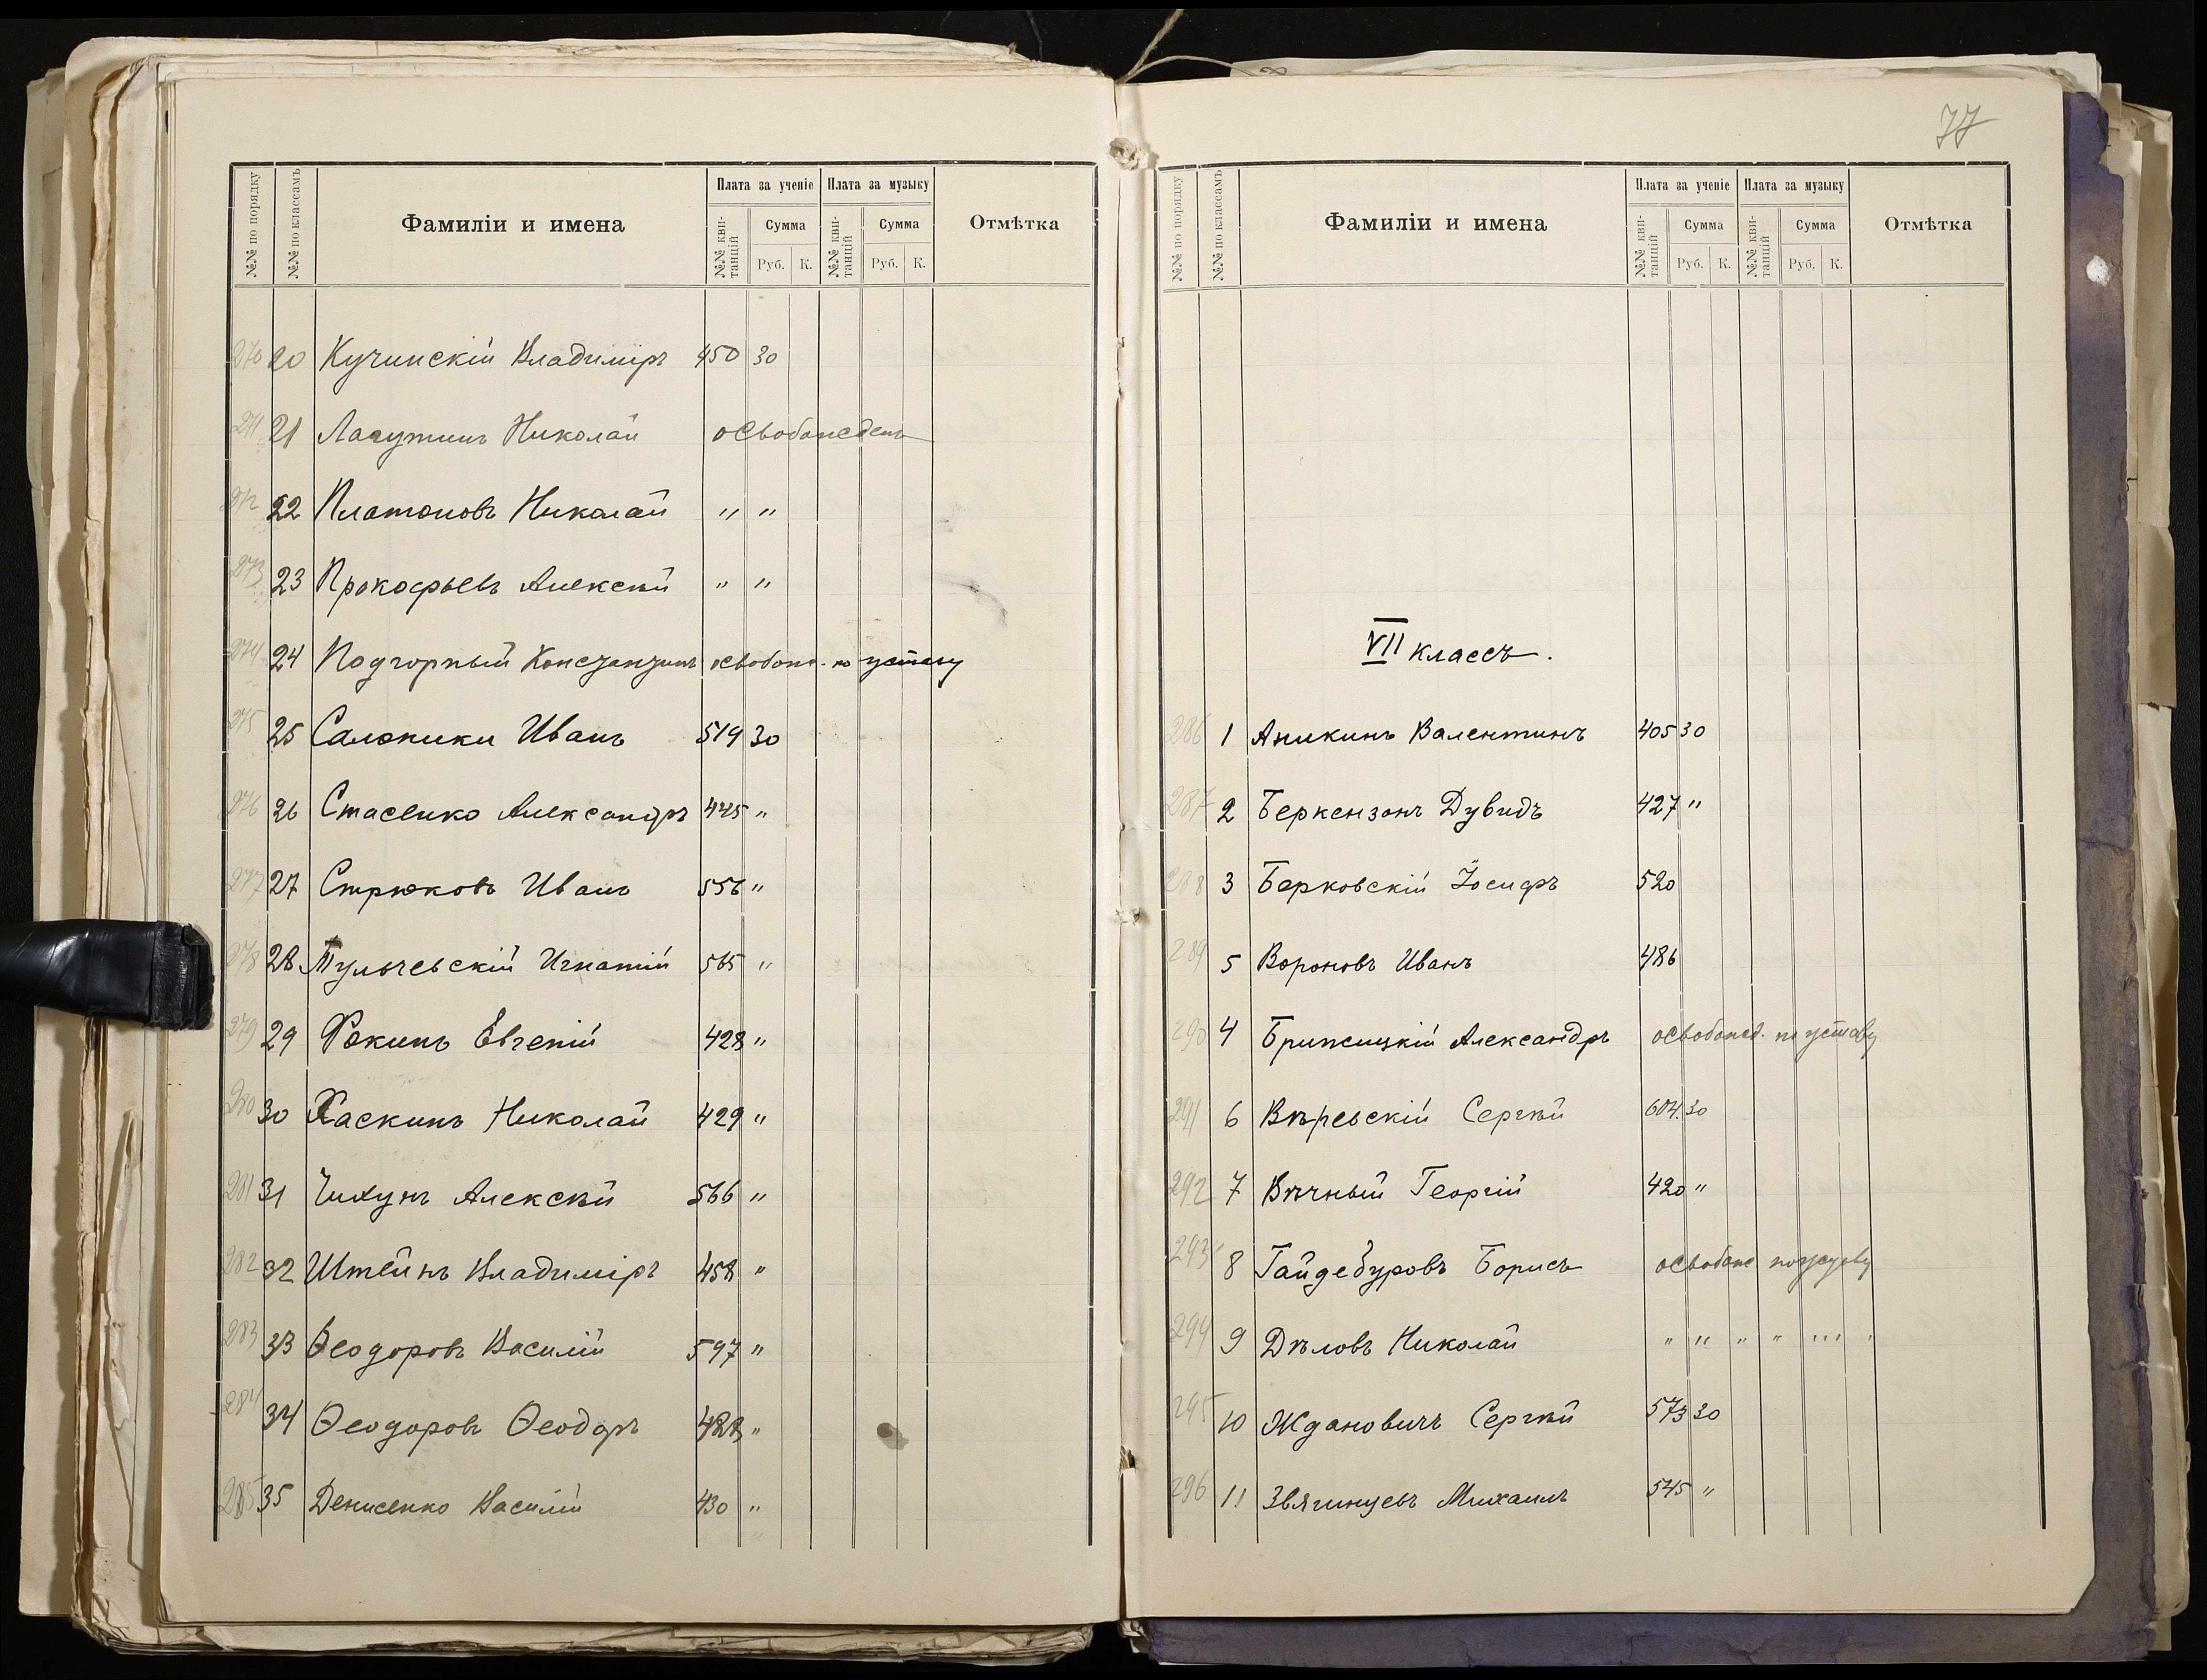 №№ по порядку №№ по классамъ Фамиліи и имена Плата за ученіе Плата за музыку Отмѣтка
№№ кви-танцій Сумма №№ кви-танцій Сумма
Руб. К. Руб. К.
270 20 Кучинскій Владиміръ 450 30
271 21 Лагутинъ Николай освобожденъ
272 22 Платоновъ Николай " "
273 23 Прокофьевъ Алексѣй " "
274 24 Подгорный Константинъ освобожд. по уставу
275 25 Саложики Иванъ 519 30
276 26 Стасенко Александръ 445 "
277 27 Стрюковъ Иванъ 556 "
278 28 Тульчевскій Игнатій 565 "
279 29 Фокинъ Евгеній 428 "
280 30 Хаскинъ Николай 429 "
281 31 Чихунъ Алексѣй 566 "
282 32 Штейнъ Владиміръ 458 "
283 33 Ѳеодоровъ Василій 597 "
284 34 Ѳеодоровъ Ѳеодоръ 488 "
285 35 Денисенко Василій 430 "
77
№№ по порядку №№ по классамъ Фамиліи и имена Плата за ученіе Плата за музыку Отмѣтка
№№ кви-танцій Сумма №№ кви-танцій Сумма
Руб. К. Руб. К.
VII классъ.
286 1 Аникинъ Валентинъ 405 30
287 2 Беркензонъ Дувидъ 427 "
288 3 Берковскій Іосифъ 520
289 5 Вороновъ Иванъ 486
290 4 Брижицкій Александръ освобожд. по уставу
291 6 Вѣревскій Сергѣй 604. 30
292 7 Вѣчный Георгій 420 "
293 8 Гайдебуровъ Борисъ освобожд по уставу
294 9 Дѣловъ Николай " " " " " "
295 10 Ждановичъ Сергѣй 573 30
296 11 Звягинцевъ Михаилъ 545 "